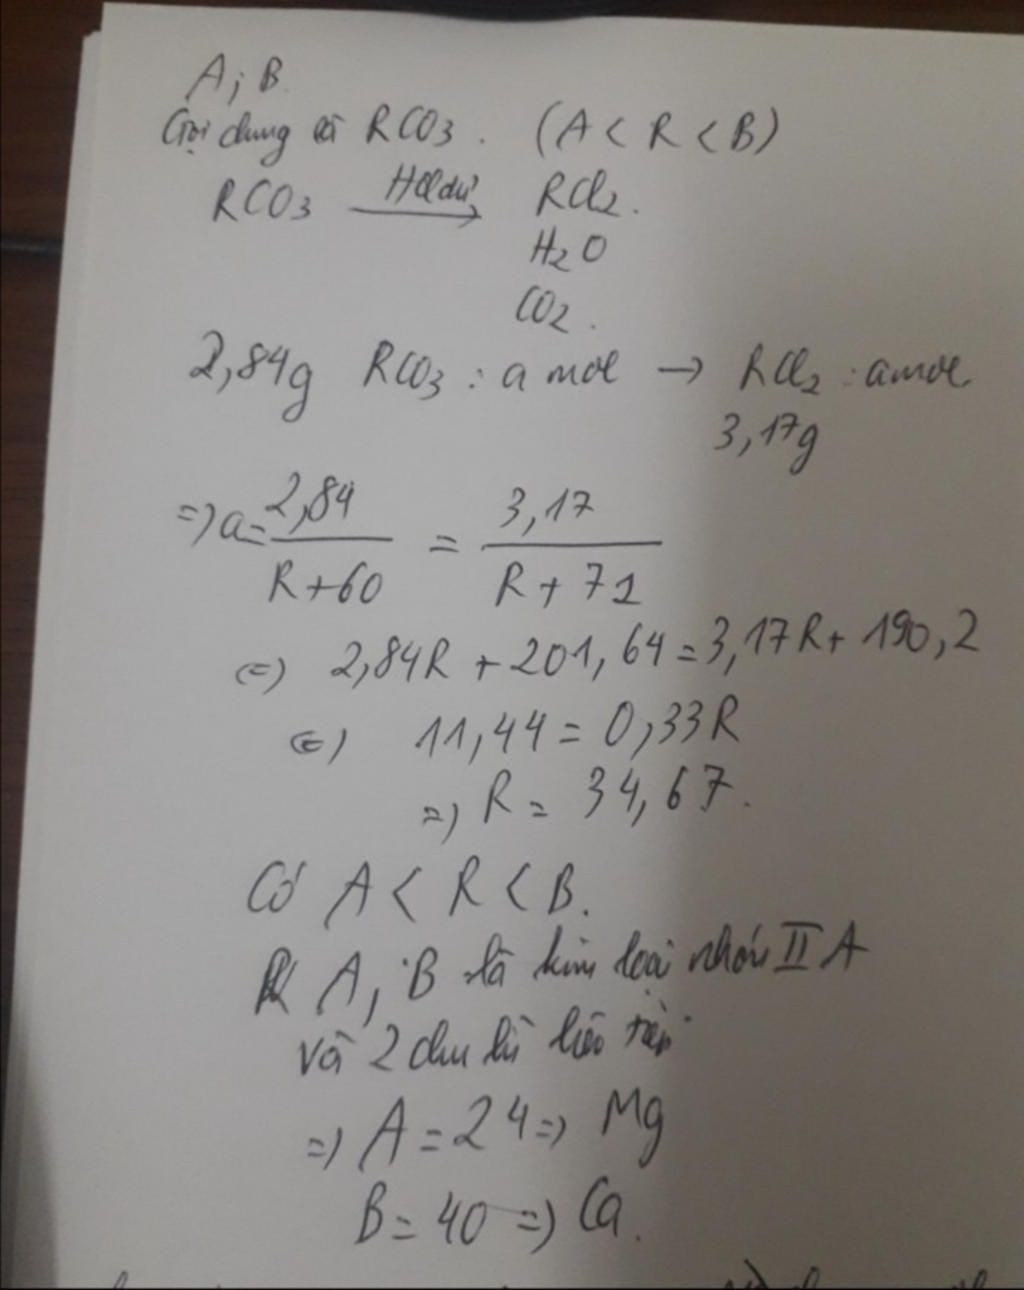 A; B.
Gọi chung là RCO3. (A < R < B)
RCO3 HCl dư → RCl2.
H2O
CO2.
2,84g RCO3 : a mol → RCl2 : a mol
3,17g
=> a = 2,84 / R+60 = 3,17 / R+71
<=> 2,84R + 201,64 = 3,17R + 190,2
<=> 11,44 = 0,33R
=> R = 34,67.
Có A < R < B.
A, B là kim loại nhóm II A
và 2 chu kì liên tiếp
=> A = 24 => Mg
B = 40 => Ca.